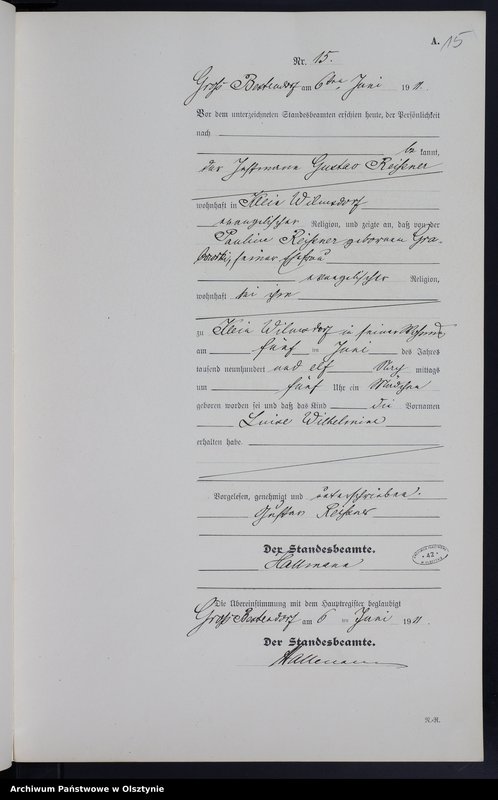 A. 15
Nr. 15.
Groß Bestendorf am 6ten Juni 1911.
Vor dem unterzeichneten Standesbeamten erschien heute, der Persönlichkeit
nach
be kannt,
der Gustav Reißner
wohnhaft in Klein Wilmsdorf
evangelischer Religion, und zeigte an, daß von der
Pauline Reißner geborenen
seiner Ehefrau
evangelischer Religion,
wohnhaft bei ihm
zu Klein Wilmsdorf in seiner Wohnung
am fünf ten Juni des Jahres
tausend neunhundert und elf Nach mittags
um fünf Uhr ein Mädchen
geboren worden sei und daß das Kind die Vornamen
Luise Wilhelmine
erhalten habe.
Vorgelesen, genehmigt und unterschrieben.
Gustav Reißner
Der Standesbeamte.
Hallmann
Die Übereinstimmung mit dem Hauptregister beglaubigt
Groß Bestendorf am 6 ten Juni 1911.
Der Standesbeamte.
Hallmann
Archiwum Państwowe w Olsztynie